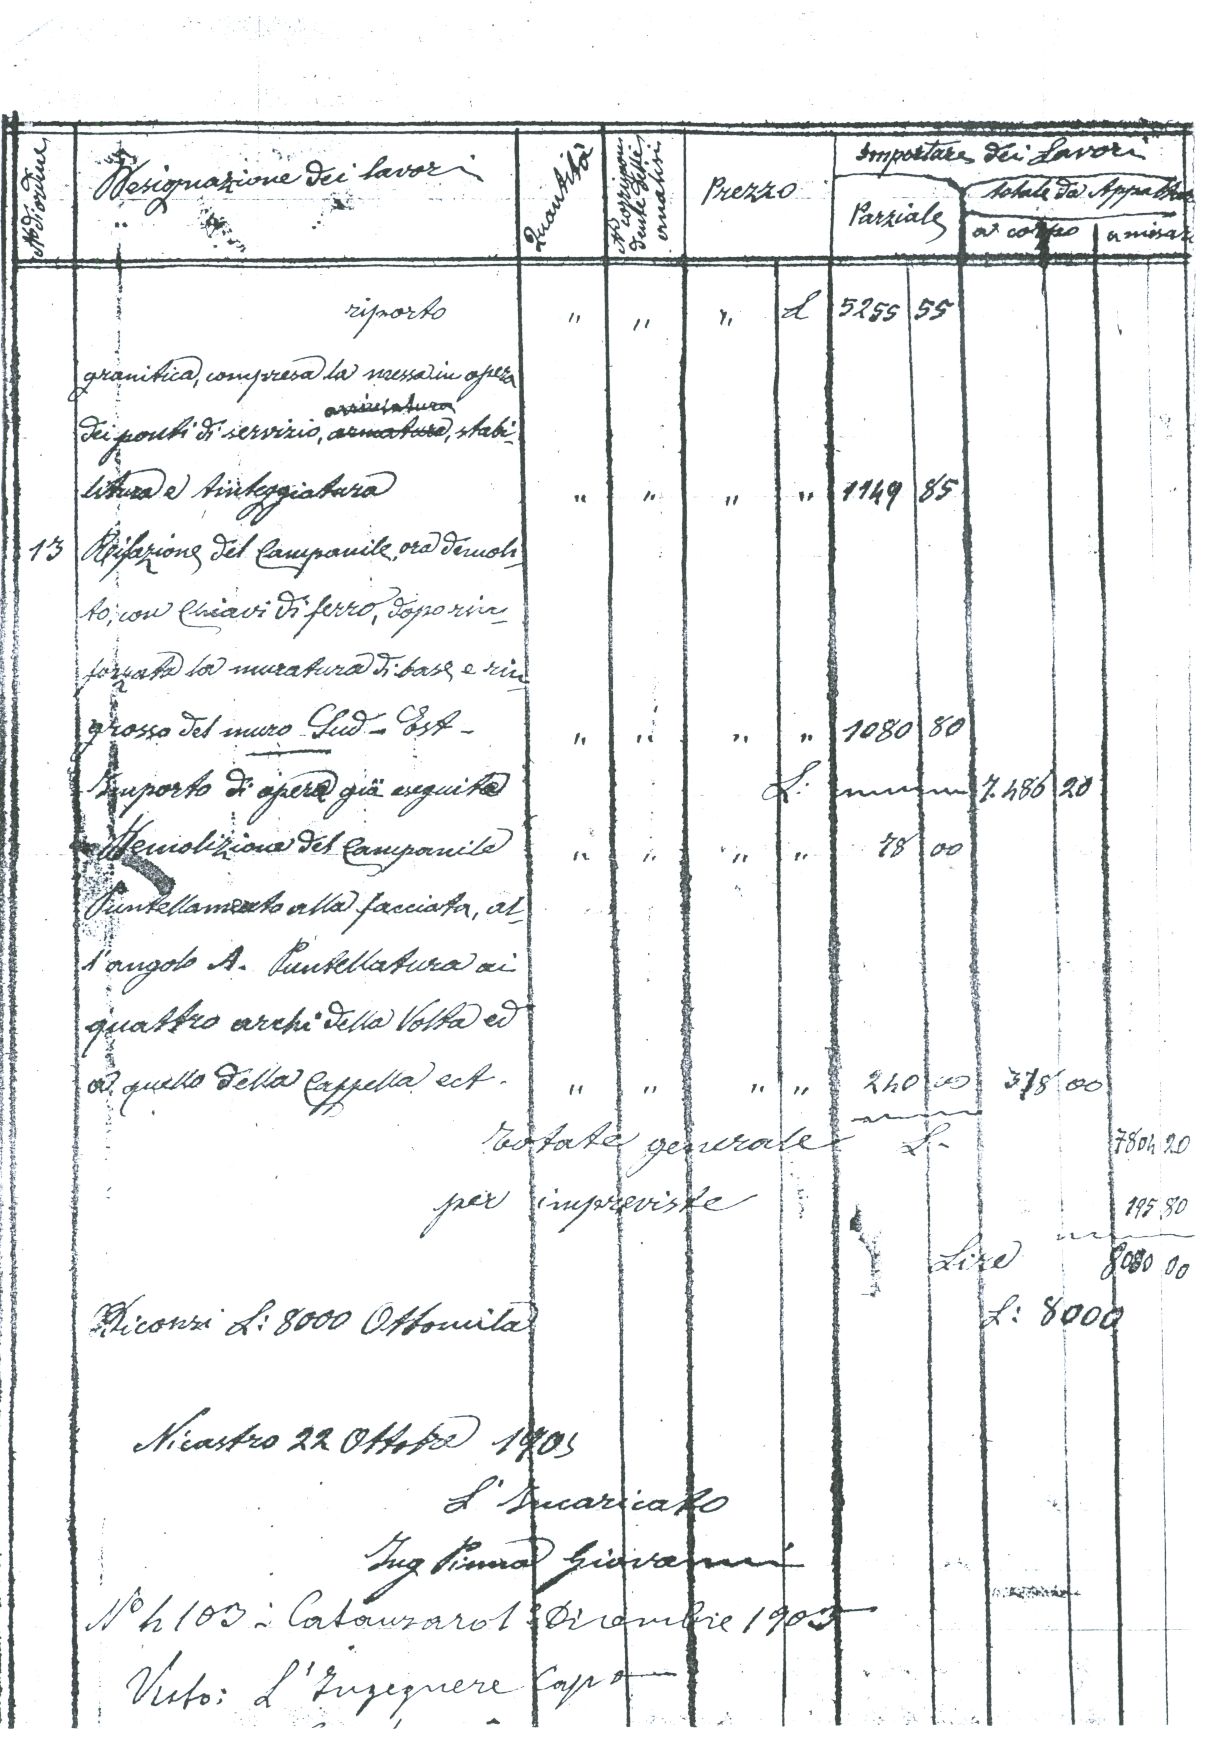 N° d'ordine
Designazione dei lavori
Quantità
Prezzo
Importare dei Lavori
Parziale
totale da
a corpo
a misura
riporto " " " L 5255 55
granitica, compresa la messa in opera
dei ponti di servizio, stabi-
litura e tinteggiatura " " " " 1149 85
13 Rifazione del Campanile, ora demoli-
to, con Chiavi di ferro, dopo rin-
forzata la muratura di base e rin-
grosso del muro Sud-Est - " " " " 1080 80
Importo di opera già eseguita L: 7.486 20
Demolizione del Campanile " " " " 78 00
Puntellamento alla facciata, al-
l'angolo A. Puntellatura ai
quattro archi della Volta ed
a quello della Cappella ect. " " " " 240 00 318 00
totale generale L. 7804 20
per impreviste 195 80
Lire 8000 00
Diconsi L: 8000 Ottomila L: 8000
Nicastro 22 Ottobre 1903
L'Incaricato
Ing Giovanni
N° 4103 : Catanzaro 1° Dicembre 1903
Visto: L'Ingegnere Capo